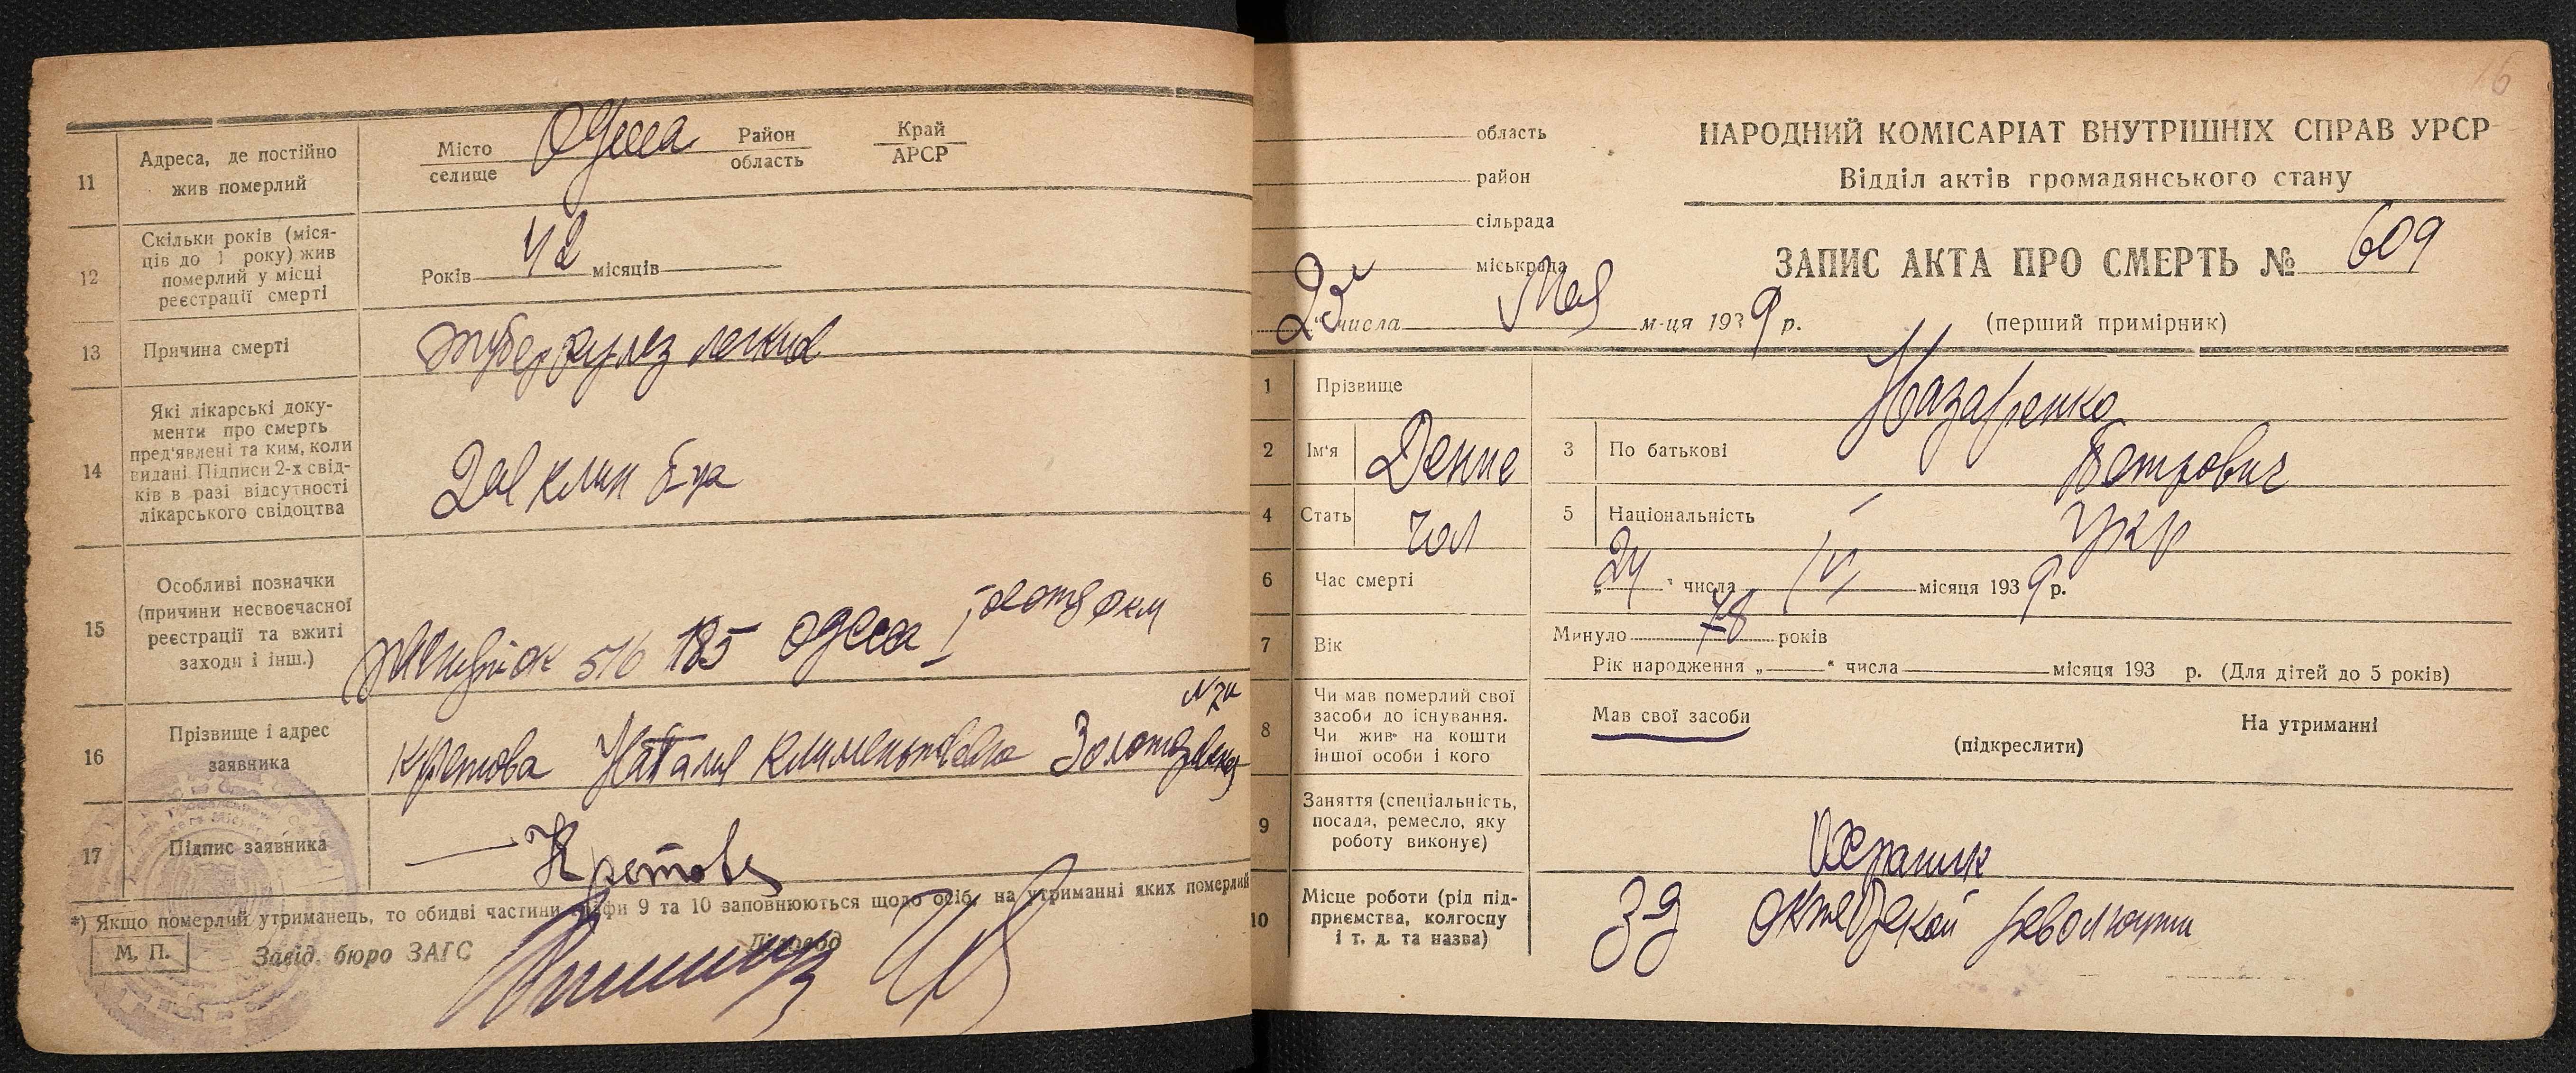 11
Адреса, де постійно
жив померлий
Місто
селище
Одесса
Район
область
Край
АРСР
12
Скільки років (міся-
ців до 1 року) жив
померлий у місці
реєстрації смерті
Років 42 місяців
13
Причина смерті
туберкулез легких
14
Які лікарські доку-
менти про смерть
пред'явлені та ким, коли
видані. Підписи 2-х свід-
ків в разі відсутності
лікарського свідоцтва
клин б-ца
15
Особливі позначки
(причини несвоєчасної
реєстрації та вжиті
заходи і інш.)
516 185 Одесса
16
Прізвище і адрес
заявника
Кретова Наталия Климентьевна
17
Підпис заявника
Кретова
*) Якщо померлий утриманець, то обидві частини графи 9 та 10 заповнюються щодо осіб, на утриманні яких померлий
М. П.
Завід. бюро ЗАГС
Діловод
16
область
район
сільрада
міськрада
25 числа Мая м-ця 1939 р.
НАРОДНИЙ КОМІСАРІАТ ВНУТРІШНІХ СПРАВ УРСР
Відділ актів громадянського стану
ЗАПИС АКТА ПРО СМЕРТЬ № 609
(перший примірник)
1
Прізвище
Назаренко
2
Ім'я
Денис
3
По батькові
Петрович
4
Стать
чол
5
Національність
укр
6
Час смерті
„24" числа IV місяця 1939 р.
7
Вік
Минуло 78 років
Рік народження „ " числа місяця 193 р. (Для дітей до 5 років)
8
Чи мав померлий свої
засоби до існування.
Чи жив на кошти
іншої особи і кого
Мав свої засоби
(підкреслити)
На утриманні
9
Заняття (спеціальність,
посада, ремесло, яку
роботу виконує)
Охраник
10
Місце роботи (рід під-
приємства, колгоспу
і т. д. та назва)
Зд Октябрской революции